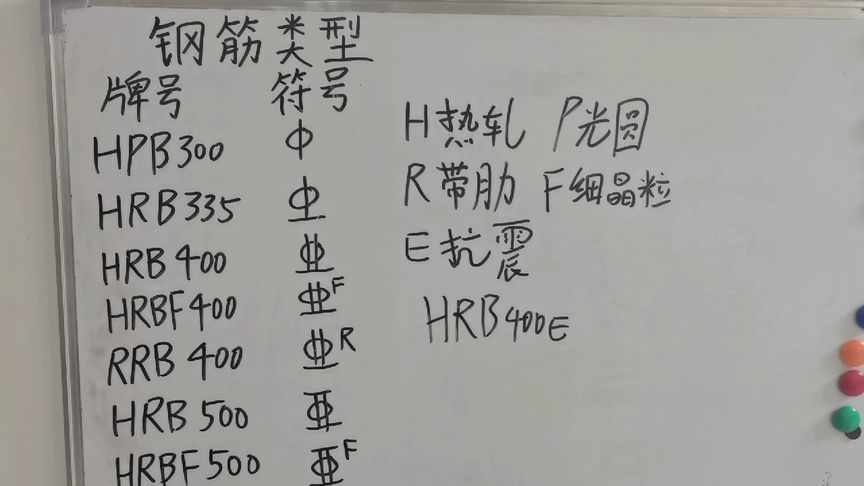 钢筋类型
牌号 符号
HPB300 Φ
HRB335
HRB400
HRBF400 F
RRB400 R
HRB500
HRBF500 F
H热轧 P光圆
R带肋 F细晶粒
E抗震
HRB400E